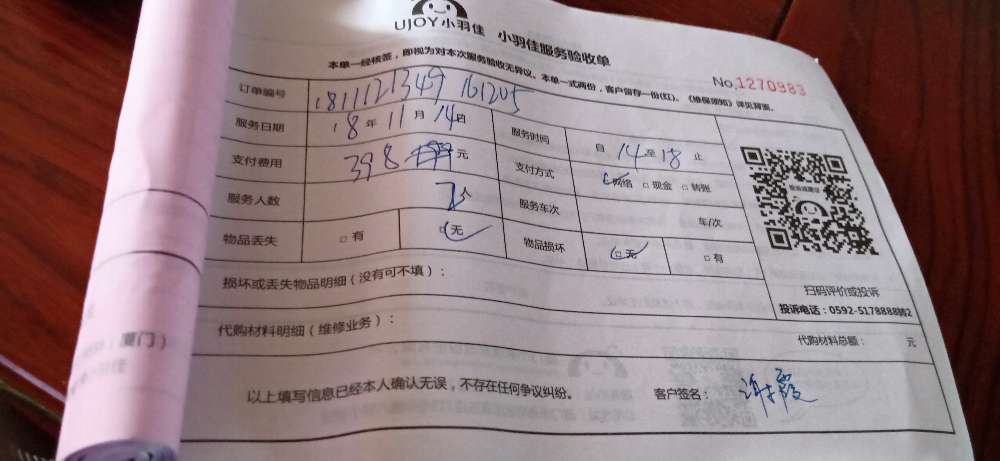 UJOY小羽佳 小羽佳服务验收单
本单一经核签，即视为对本次服务验收无异议。本单一式两份，客户留存一份(红)。《维保须知》详见背面。
No.1270983
订单编号 1811121349161205
服务日期 18年11月14日 服务时间 自14至18止
支付费用 398 元 支付方式 □网络 □现金 □转账
服务人数 2人 服务车次 车/次
物品丢失 □有 □无 物品损坏 □无 □有
扫码评价或投诉
投诉电话：0592-5178888转2
损坏或丢失物品明细（没有可不填）：
代购材料明细（维修业务）： 代购材料总额： 元
以上填写信息已经本人确认无误，不存在任何争议纠纷。 客户签名： 谢霞
厦门）